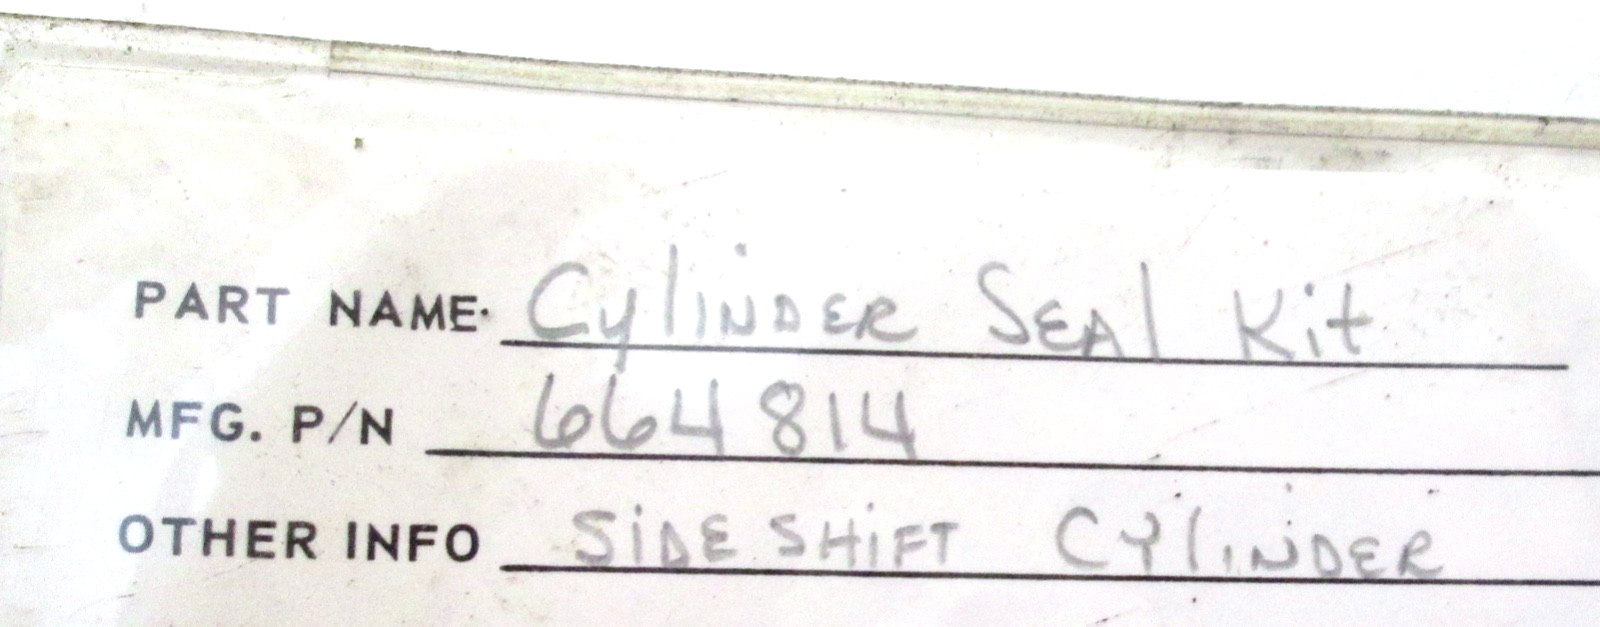 PART NAME· Cylinder Seal Kit
MFG. P/N 664814
OTHER INFO SiDE SHiFT CYlinDER